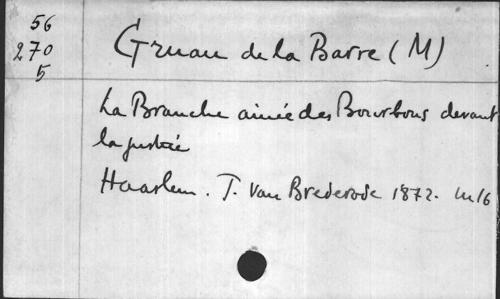 56
270
5
Gruau de la Barre (M)
La Branche ainée des Bourbons devant
la justice
Haarlem. T. Van Brederode 1872. in 16